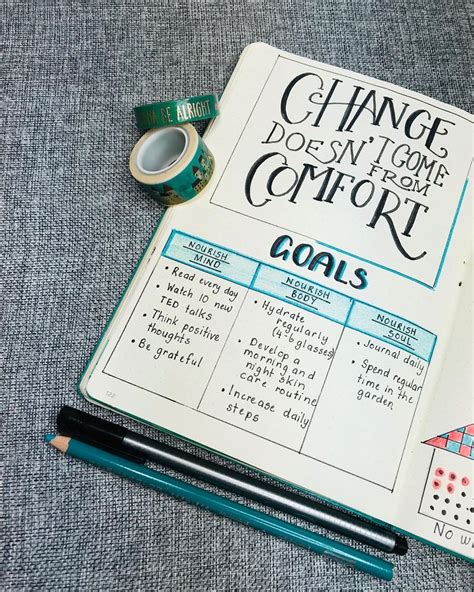 BE ALRIGHT
CHANGE
DOESN'T COME
FROM
COMFORT
GOALS
NOURISH
MIND
• Read every day
• Watch 10 new
TED talks
• Think positive
thoughts
• Be grateful
NOURISH
BODY
• Hydrate
regularly
(4-6 glasses)
• Develop a
morning and
night skin
care routine
• Increase daily
steps
NOURISH
SOUL
• Journal daily
• Spend regular
time in the
garden
No